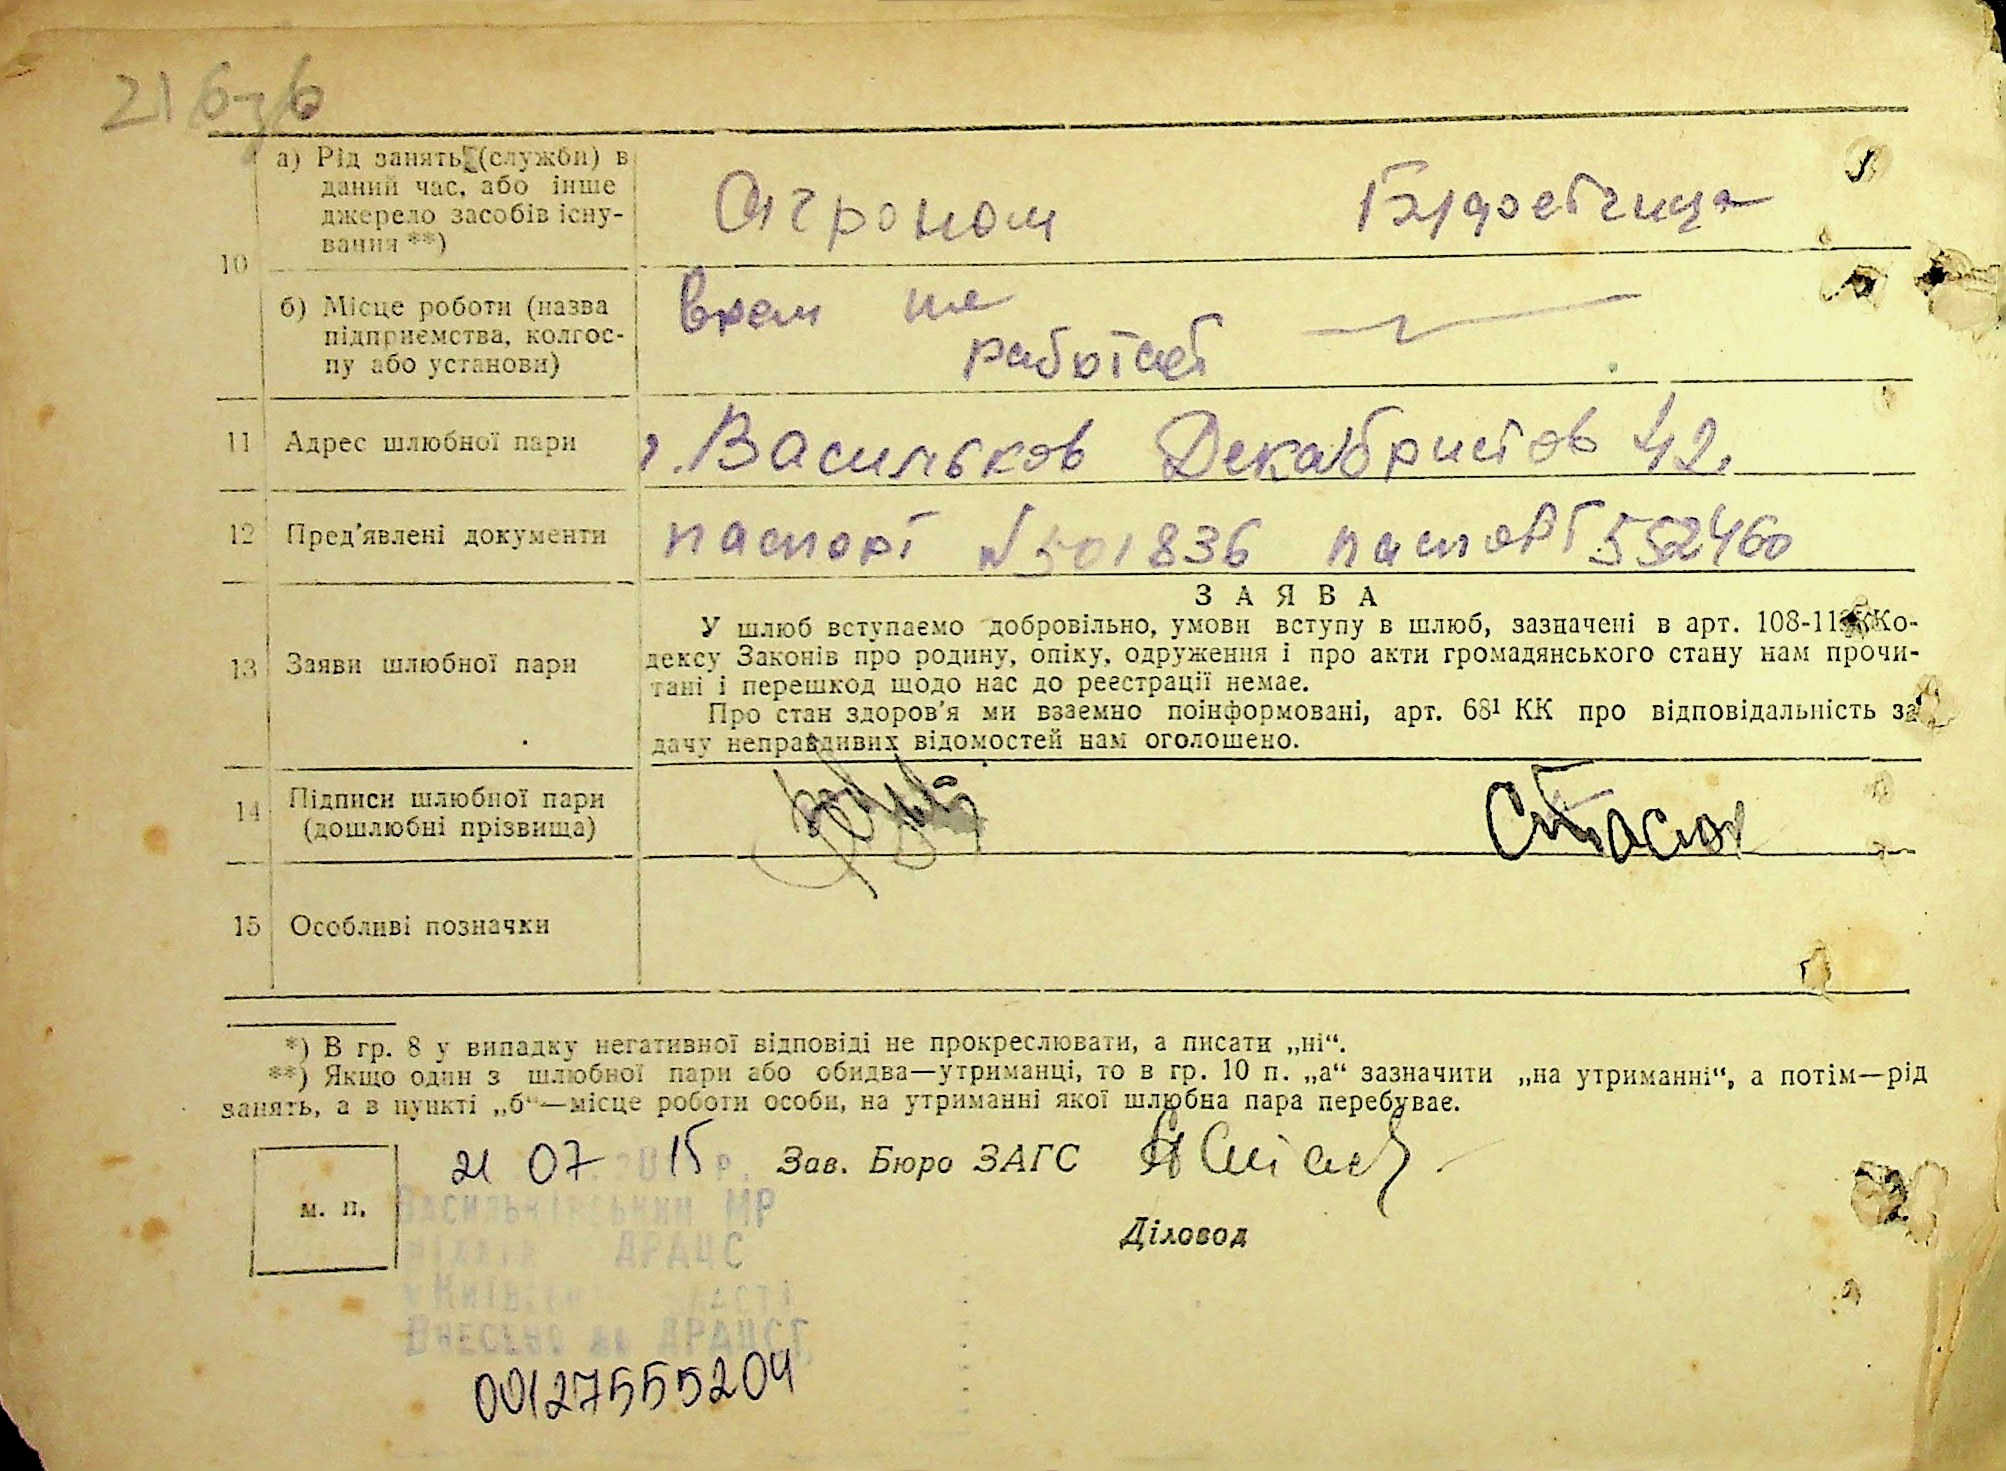 а) Рід занять (служби) в
даний час, або інше
джерело засобів існу-
вання **)
Агроном
10
б) Місце роботи (назва
підприємства, колгос-
пу або установи)
врем не
работает
11 Адрес шлюбної пари
г. Васильков Декабристов 42.
12 Пред'явлені документи
паспорт N 501836 паспорт 552460
13 Заяви шлюбної пари
ЗАЯВА
У шлюб вступаємо добровільно, умови вступу в шлюб, зазначені в арт. 108-11 Ко-
дексу Законів про родину, опіку, одруження і про акти громадянського стану нам прочи-
тані і перешкод щодо нас до реєстрації немає.
Про стан здоров'я ми взаємно поінформовані, арт. 68¹ КК про відповідальність за
дачу неправдивих відомостей нам оголошено.
14 Підписи шлюбної пари
(дошлюбні прізвища)
15 Особливі позначки
*) В гр. 8 у випадку негативної відповіді не прокреслювати, а писати „ні“.
**) Якщо один з шлюбної пари або обидва—утриманці, то в гр. 10 п. „а“ зазначити „на утриманні“, а потім—рід
занять, а в пункті „б“—місце роботи особи, на утриманні якої шлюбна пара перебуває.
21 07 15 р.
Зав. Бюро ЗАГС
м. п.
Васильківський МР
ДРАЦС
Діловод
Внесено до ДРАЦСГ
00127555204